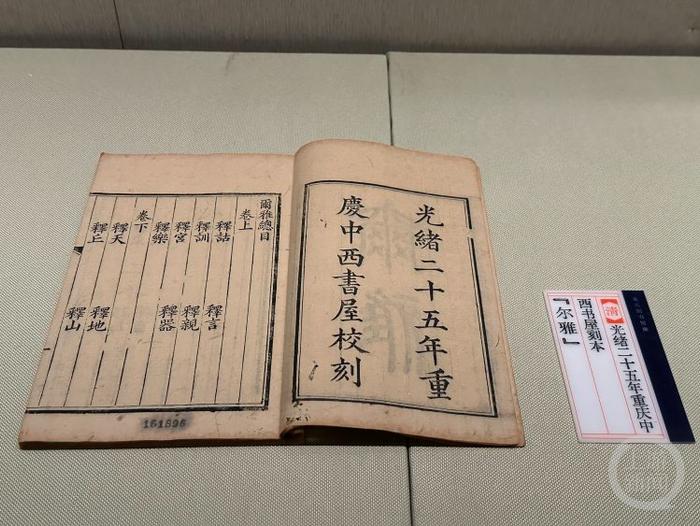 光緒二十五年重
慶中西書屋校刻
爾雅總目
卷上
釋詁 釋言
釋訓 釋親
釋宮 釋器
釋樂
卷下
釋天 釋地
釋丘 釋山
161896
【清】光绪二十五年重庆中
西书屋刻本
『尔雅』
上游新闻